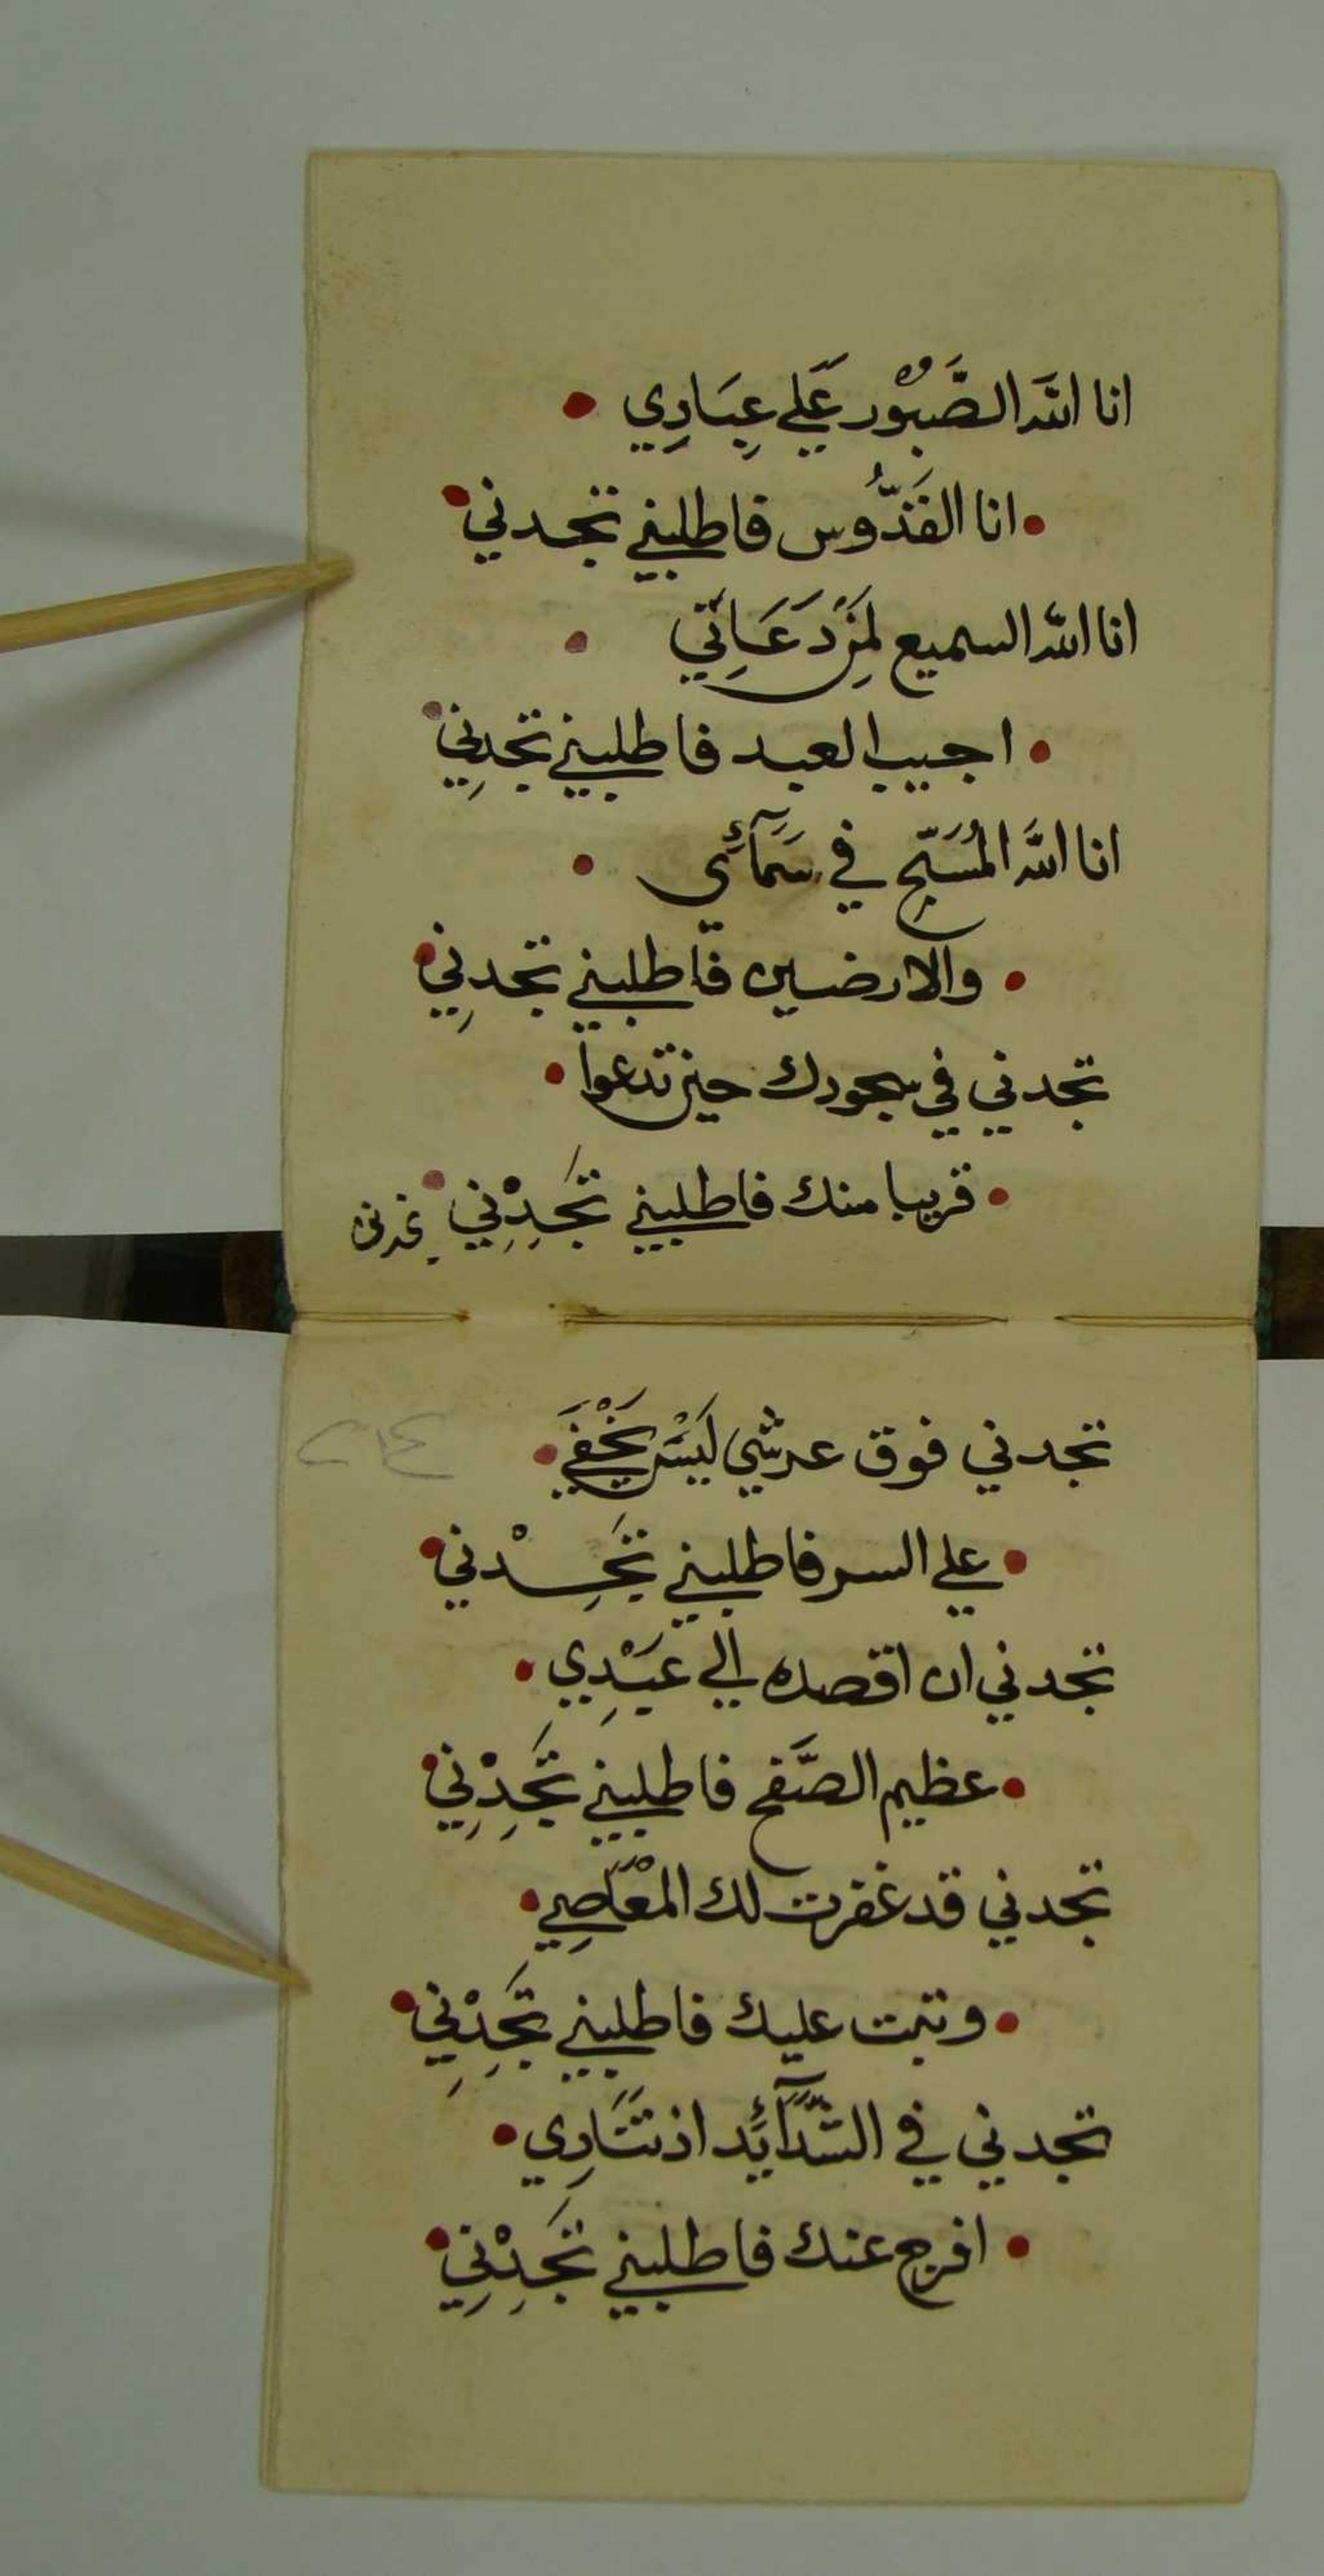 انا اللَّه الصَّبُوْر عَلَي عِبَادِي
انا القَدُّوس فاطلبني تجدني
انا اللّه السميع لِمَن دَعَانِي
اجيب العبد فاطلبني تجدِني
انا اللَّه المُسَبَّح في سَمَآئي
والارضين فاطلبني تجدنِي
تجدني في سجودك حين تدعوا
قريبا منك فاطلبني تَجِدْنِي
تجدني
تجدني فوق عرشي لَيْسَ يَخْفَي
علي السر فاطلبني تَجِدْني
تجدني ان اقصده الي عَبْدِي
عظيم الصَّفح فاطلبني تَجِدْنِي
تجدني قد غفرت لك المْعَاصِي
وتبت عليك فاطلبني تَجِدْنِي
تجدني في الشَّدَآئد اذ تنَادِي
افرج عنك فاطلبني تَجِدْنِي